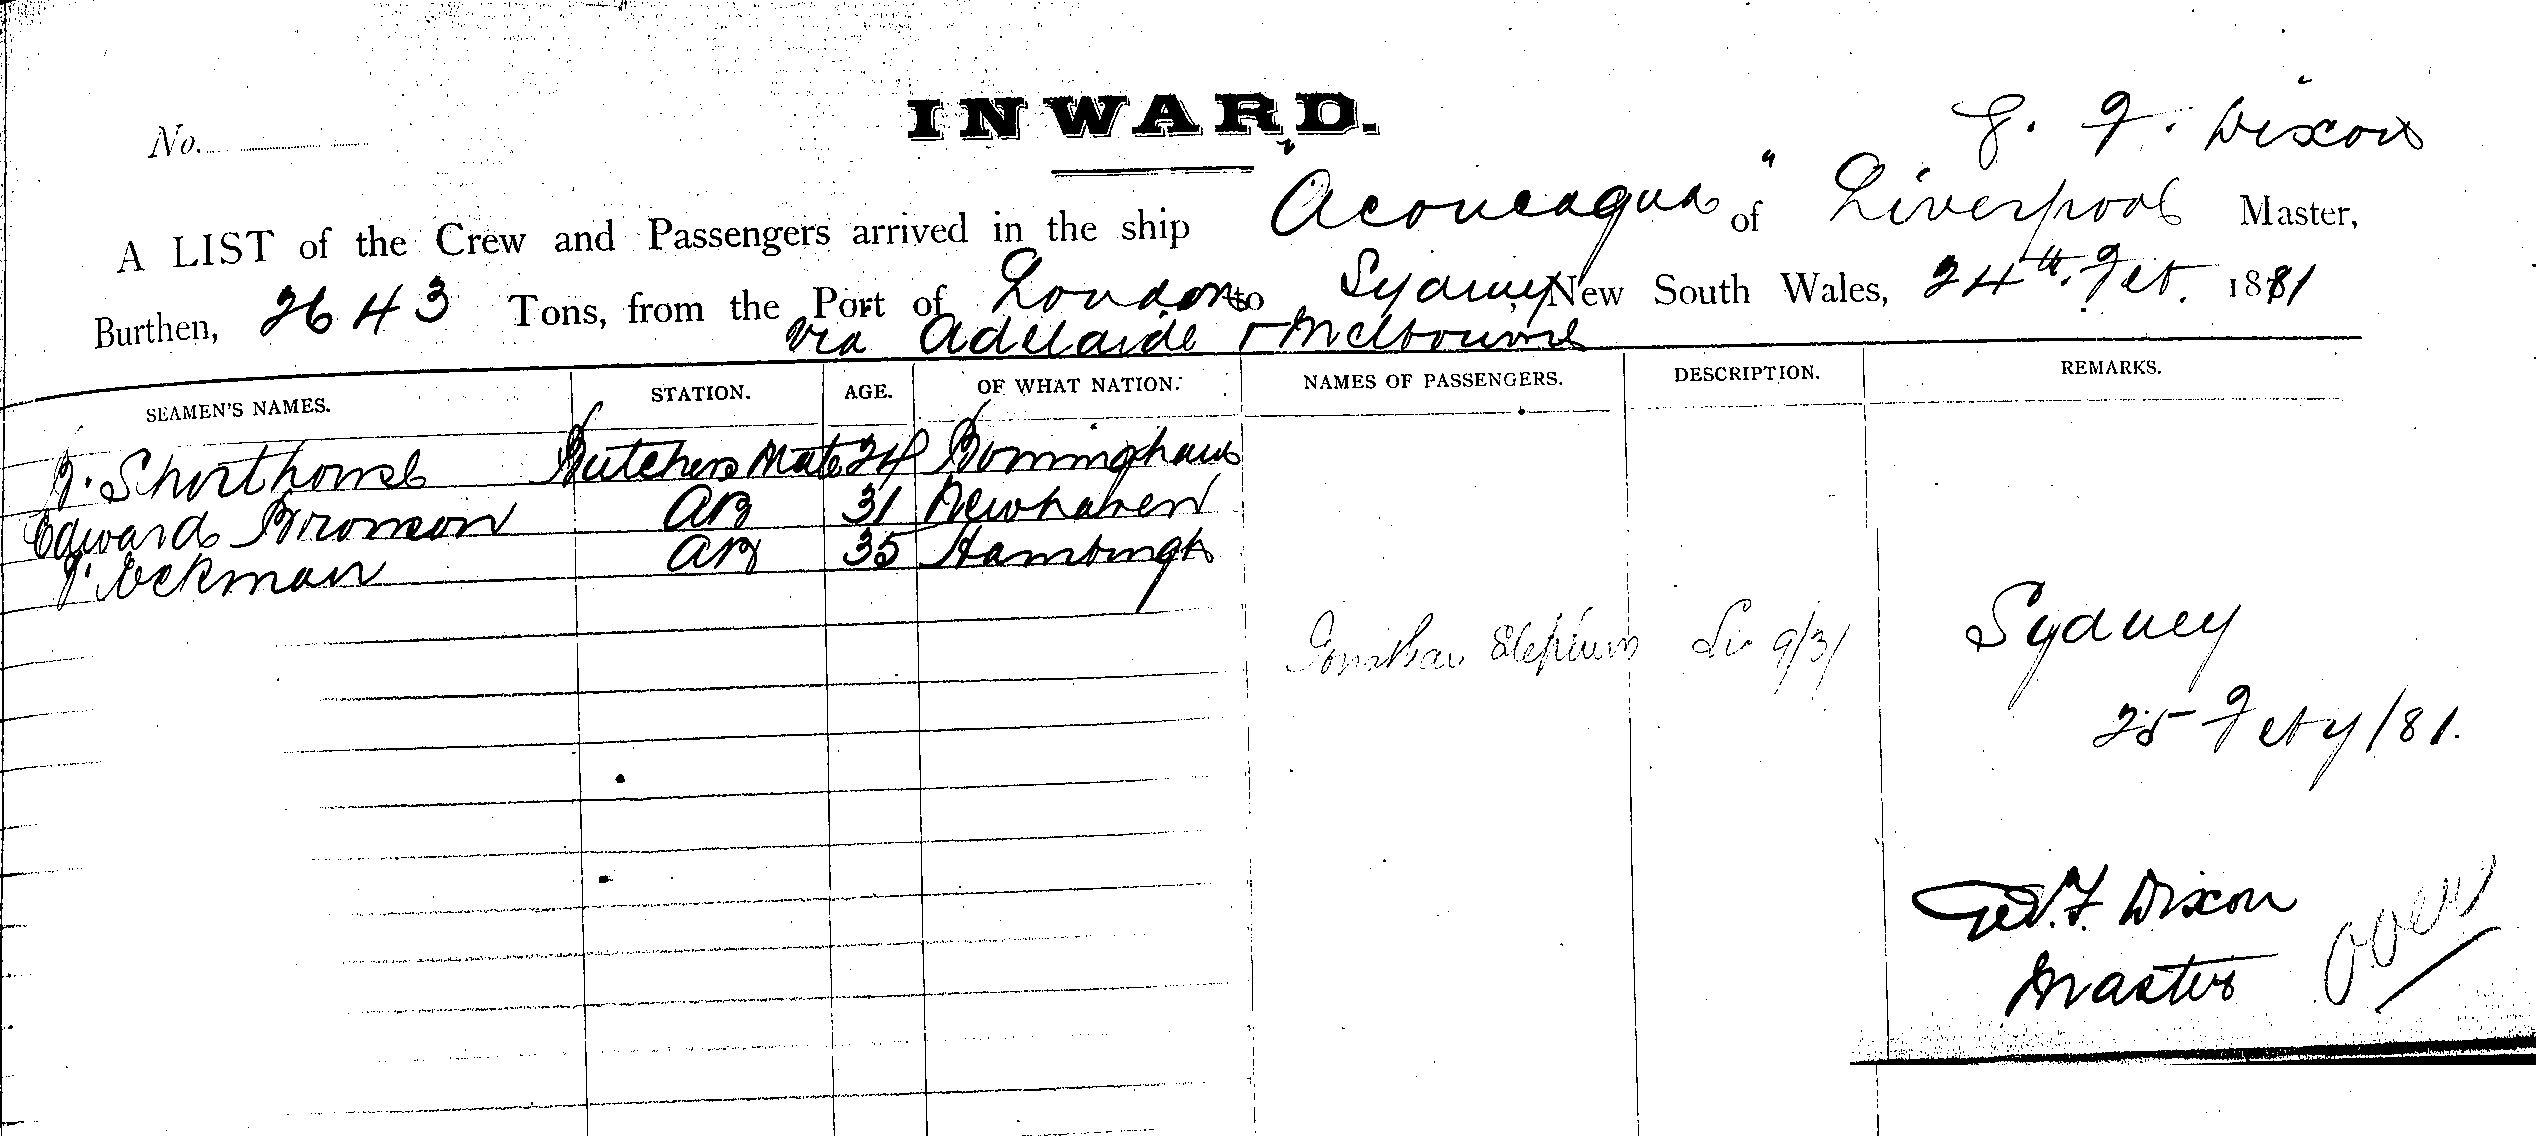 INWARD.
No.
G. F. Dixon
A LIST of the Crew and Passengers arrived in the ship "Aconcagua" of Liverpool Master,
Burthen, 2643 Tons, from the Port of London to Sydney New South Wales, 24th. Feb. 1881
via Adelaide + Melbourne
SEAMEN'S NAMES. STATION. AGE. OF WHAT NATION. NAMES OF PASSENGERS. DESCRIPTION. REMARKS.
Shorthouse Butchers Mate 24 Birmingham
Edward AB 31 Newhaven
Eckman AB 35 Hamburgh
Jonathan Stephens 9/3/
Sydney
25 Feby/81.
Geo. F. Dixon
Master
over